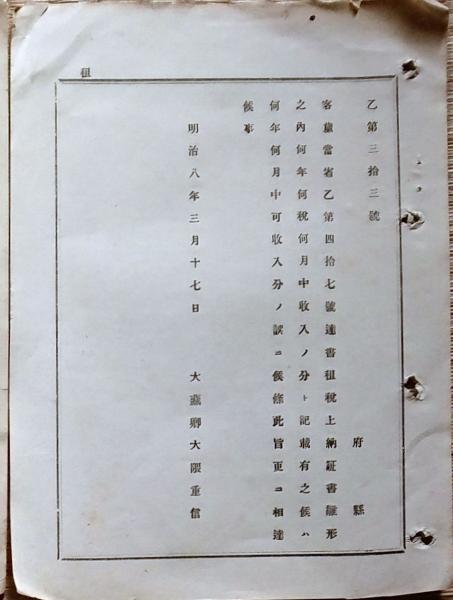 租
乙第三拾三號
府縣
客歲當省乙第四拾七號達書租稅上納証書雛形
之內何年何稅何月中收入ノ分ト記載有之候ハ
何年何月中可收入分ノ誤ニ候條此旨更ニ相達
候事
明治八年三月十七日 大藏卿大隈重信